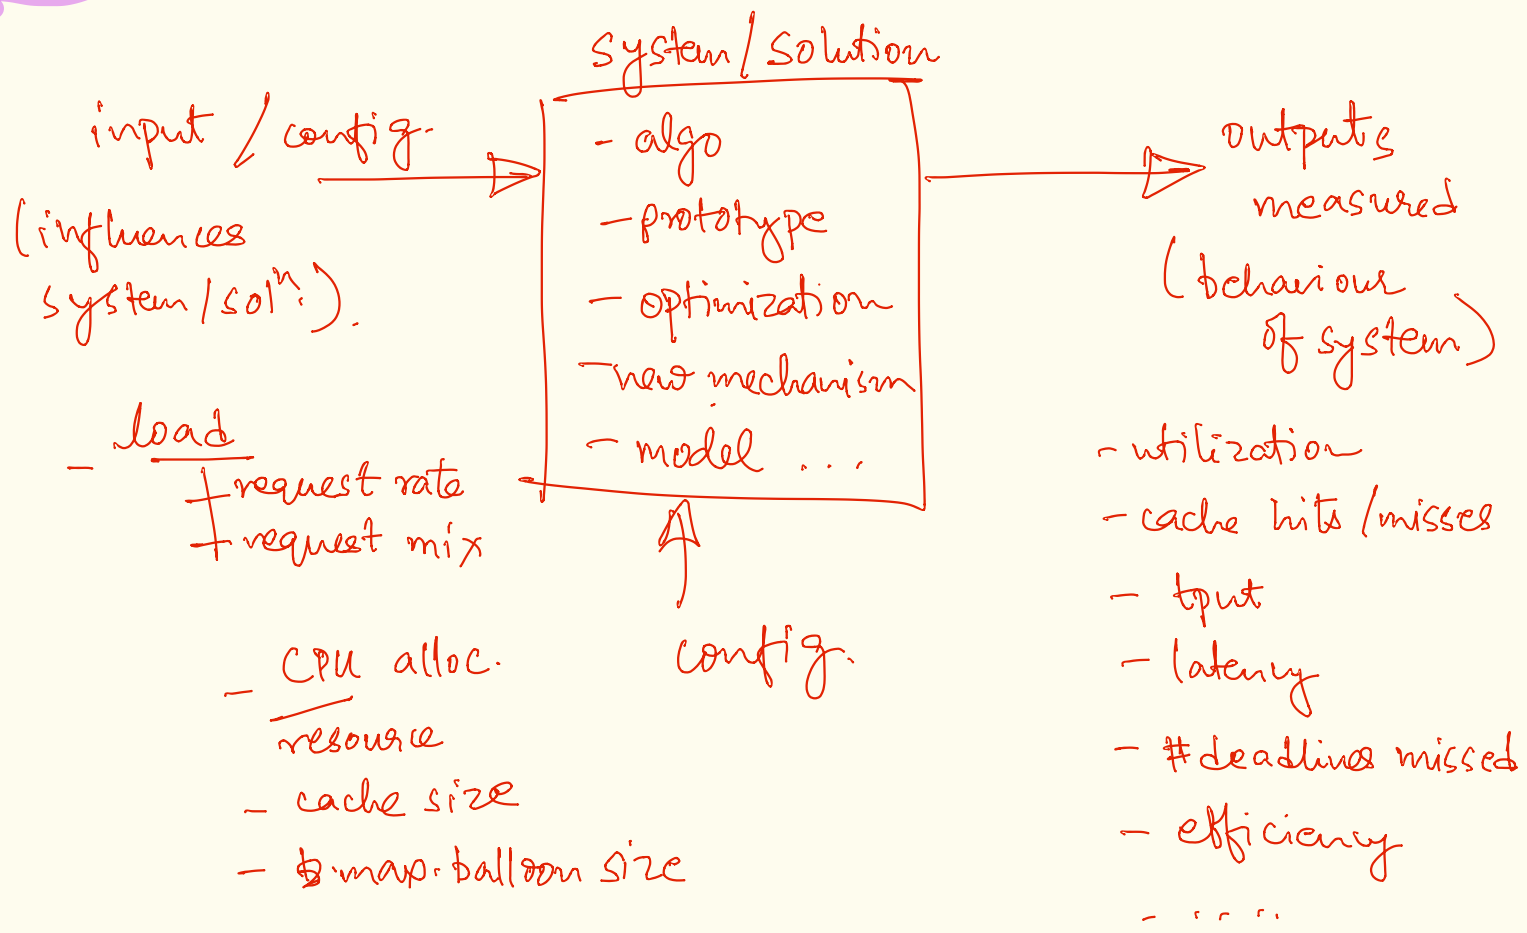 system/solution
input / config.
(influences
system/solⁿ.).
- algo
- prototype
- optimization
- new mechanism
- model ...
outputs
measured
(behaviour
of system)
- load
request rate
request mix
config.
- CPU alloc.
resource
- cache size
- max. balloon size
- utilization
- cache hits/misses
- tput
- latency
- #deadlines missed
- efficiency
- ....